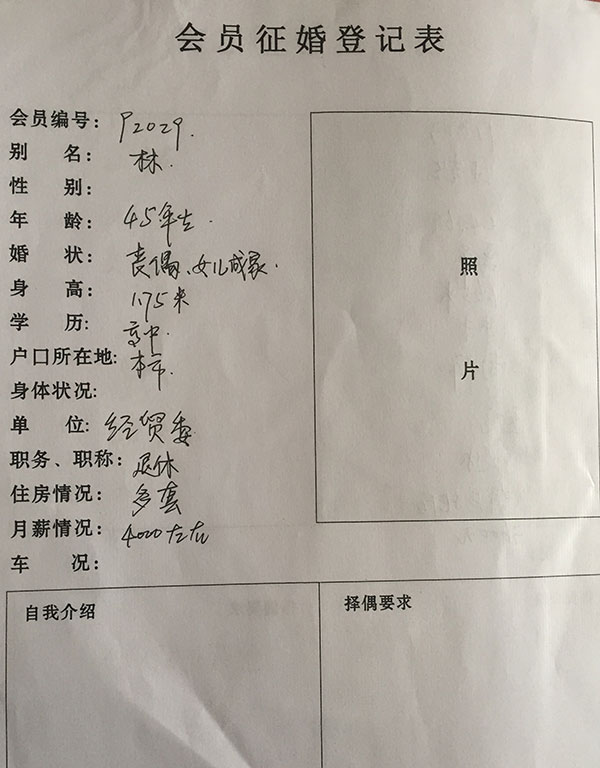 会员征婚登记表
会员编号: P2029.
别 名: 林.
性 别:
年 龄: 45年生.
婚 状: 丧偶、女儿成家.
身 高: 1.75米
学 历: 高中.
户口所在地: 本市.
身体状况:
单 位: 经贸委
职务、职称: 退休
住房情况: 多套
月薪情况: 4000左右
车 况:
照
片
自我介绍
择偶要求